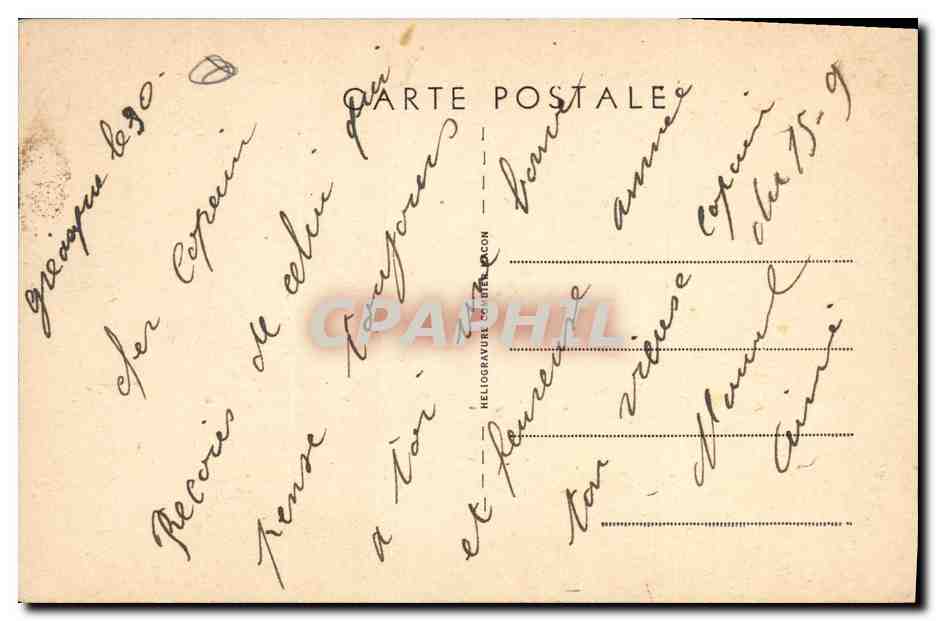 CARTE POSTALE
le 30
cher Copain
Recois de celui qui
pense toujours
a toi une bonne
et heureuse annee
ton vieuse copain
du 15-9
Aimé
HELIOGRAVURE COMBIER MACON
CPAPHIL